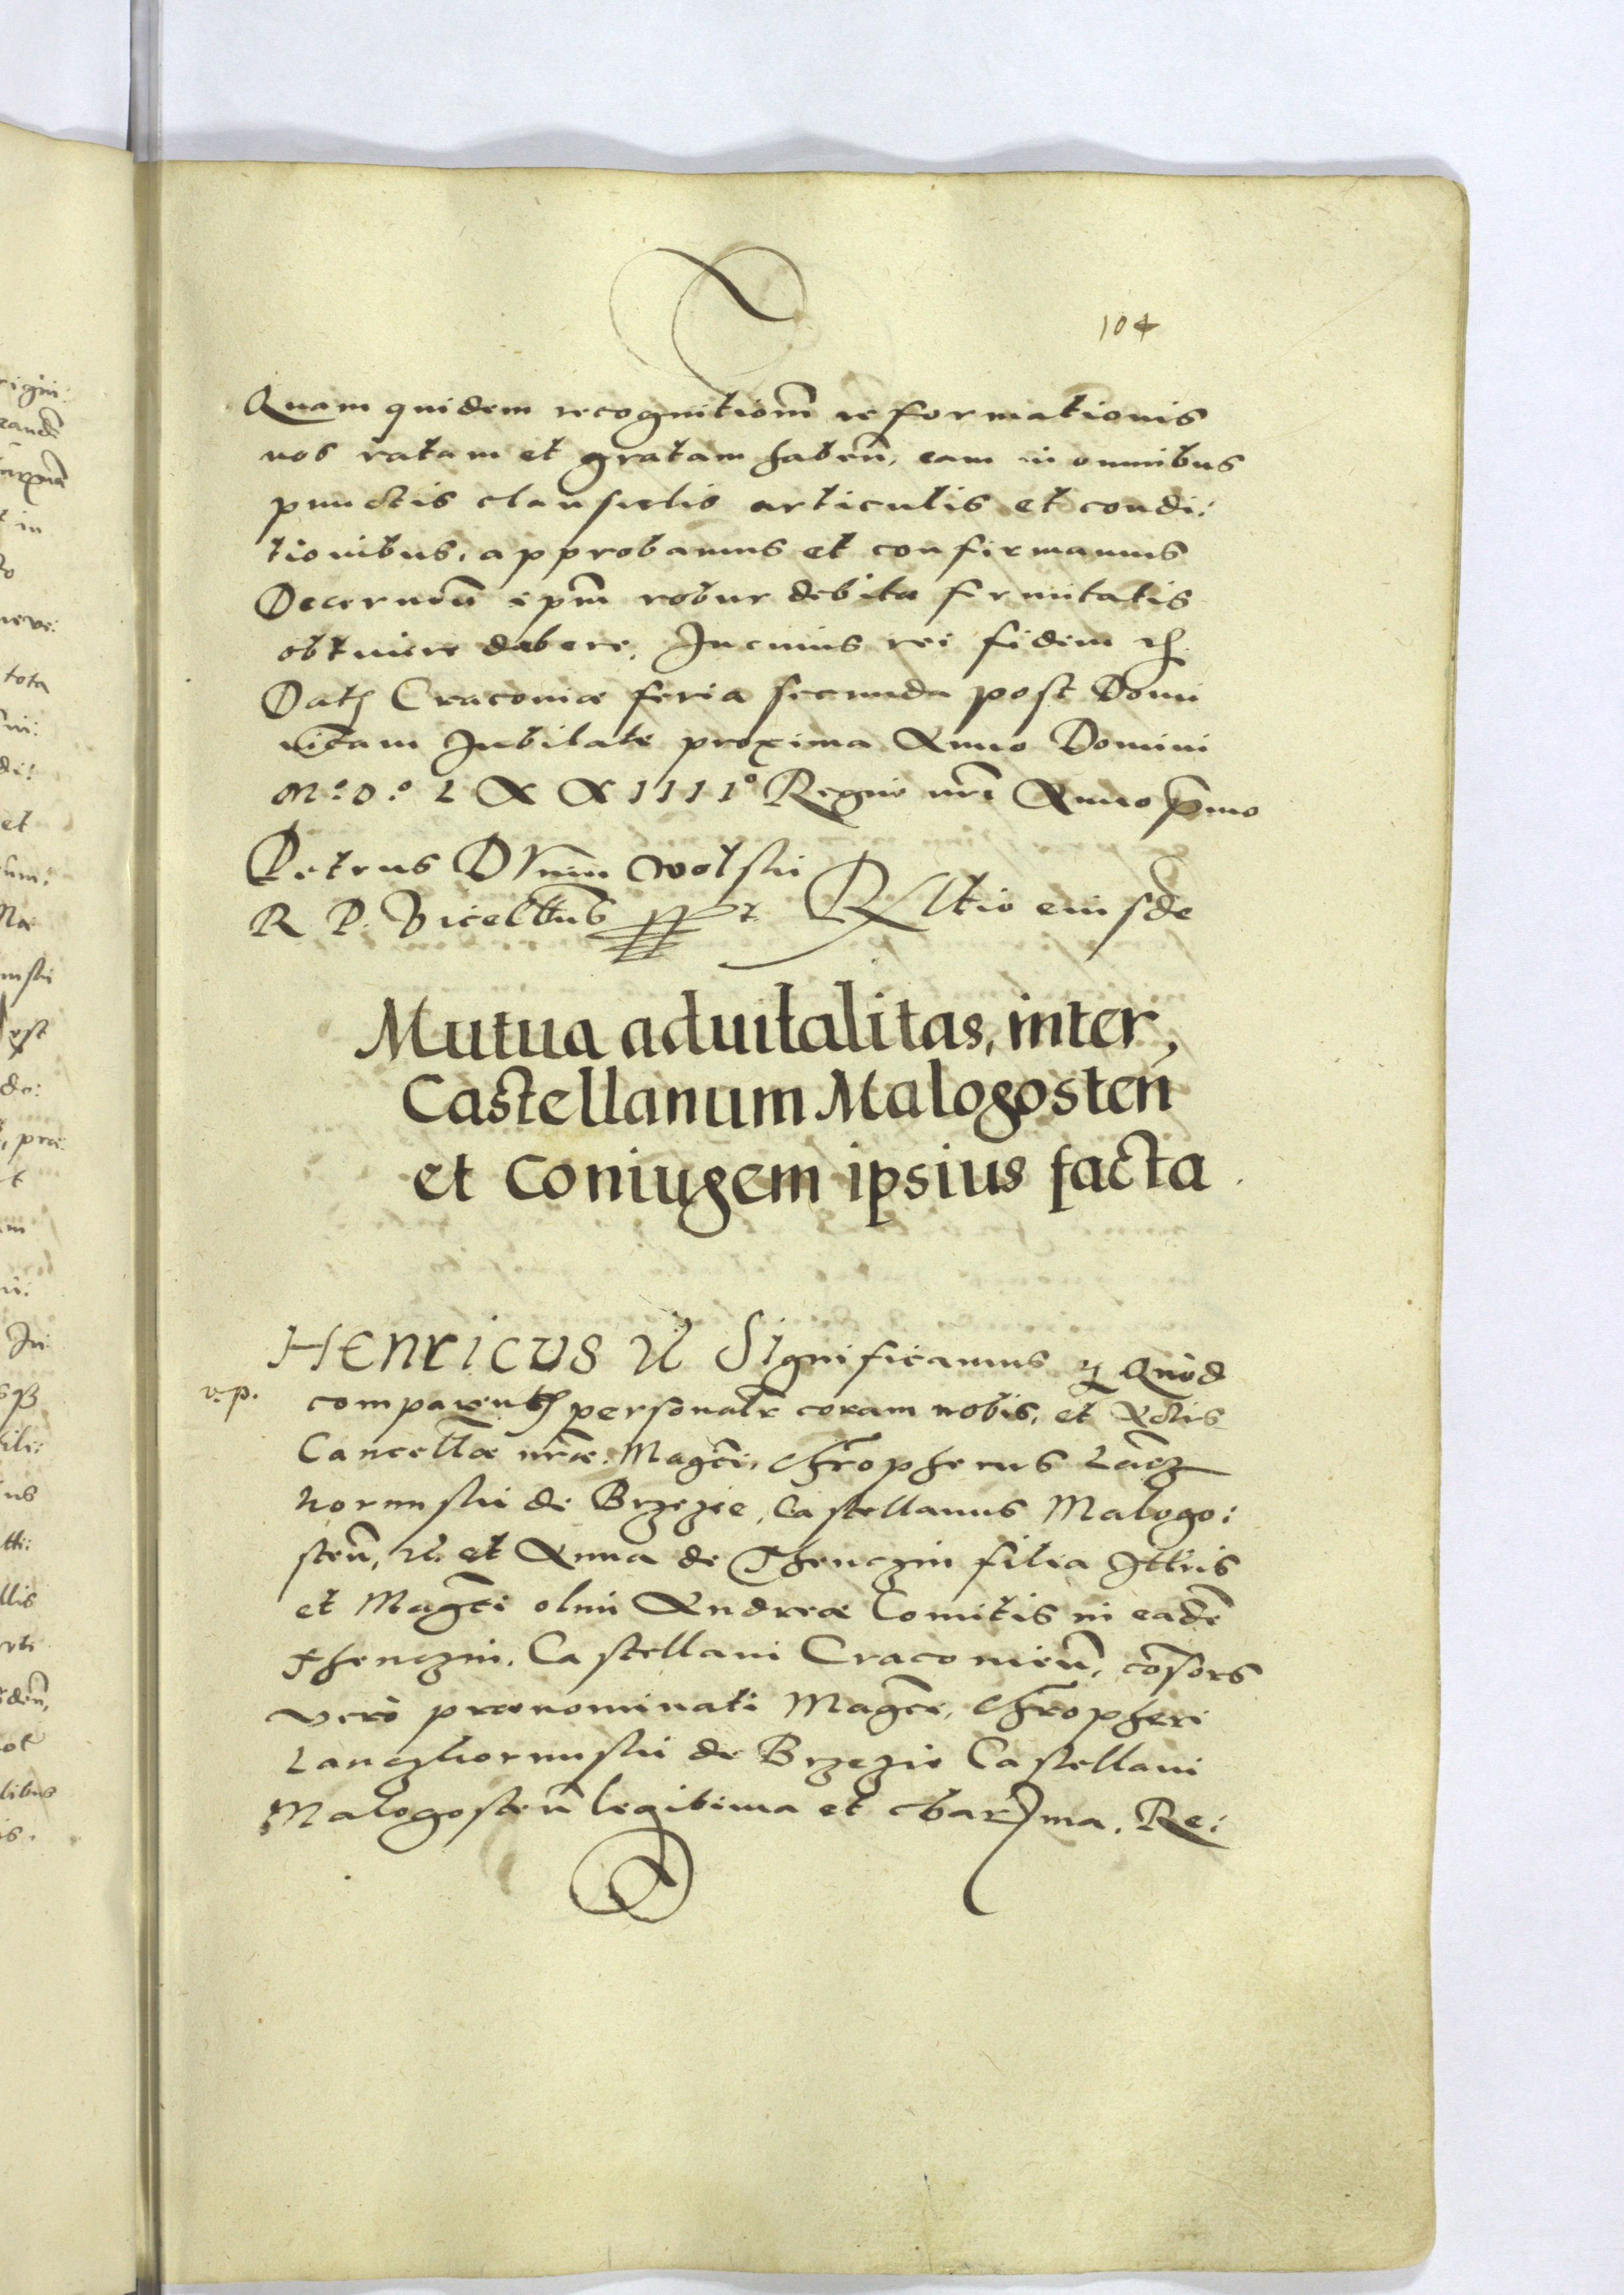 104
Quam quidem recognitiom̃ reformationis
nos ratam et gratam haben̄, eam in omnibus
punctis clausulis articulis et condi:
tionibus, approbamus et confirmamus
Decernẽn ipm̃ robur debitæ firmitatis
obtinere debere. In cuius rei fidem
Dat Cracoviæ feria secunda post Domi
nicam Jubilate proxima Anno Domini
Mº. Dº. LXXIIIIº Regni nr̃i Anno p̃mo
Petrus Dunin Wolski
R. P. Vicecllrius Rltio eiusdẽ
Mutua advitalitas, inter,
Castellanum Malogosten̄
et Coniugem ipsius facta.
Henricus Significamus Quòd
v. p.
comparent personalr̃ coram nobis, et Actis
Cancellæ nr̃æ. Magc̃i, Chr̃opherus Lañcz
korunski de Brzezie, Castellanus Malogo:
sten̄, et Anna de Thenczin filia Illris
et Magc̃i olim Andreæ Comitis in eadẽ
Thenczin, Castellani Cracovien̄, cõsors
verò prænominati Magc̃i, Chr̃opheri
Lanczkorunski de Brzezie Castellani
Malogosten̄ legitima et charma. Re: